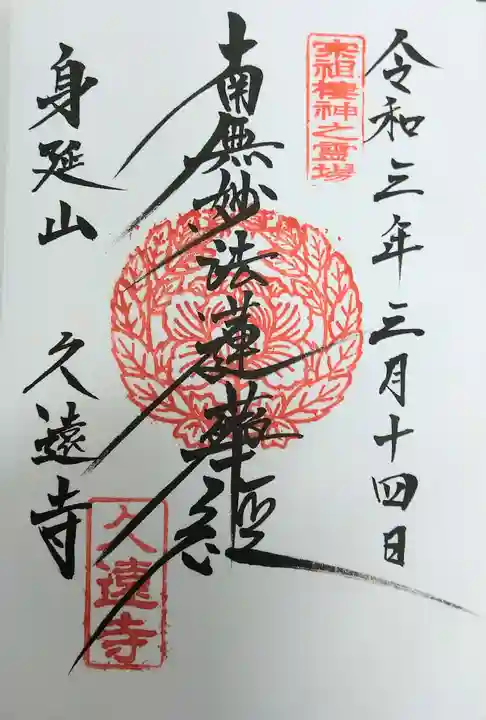 令和三年三月十四日
宗祖棲神之霊場
南無妙法蓮華経
身延山 久遠寺
久遠寺